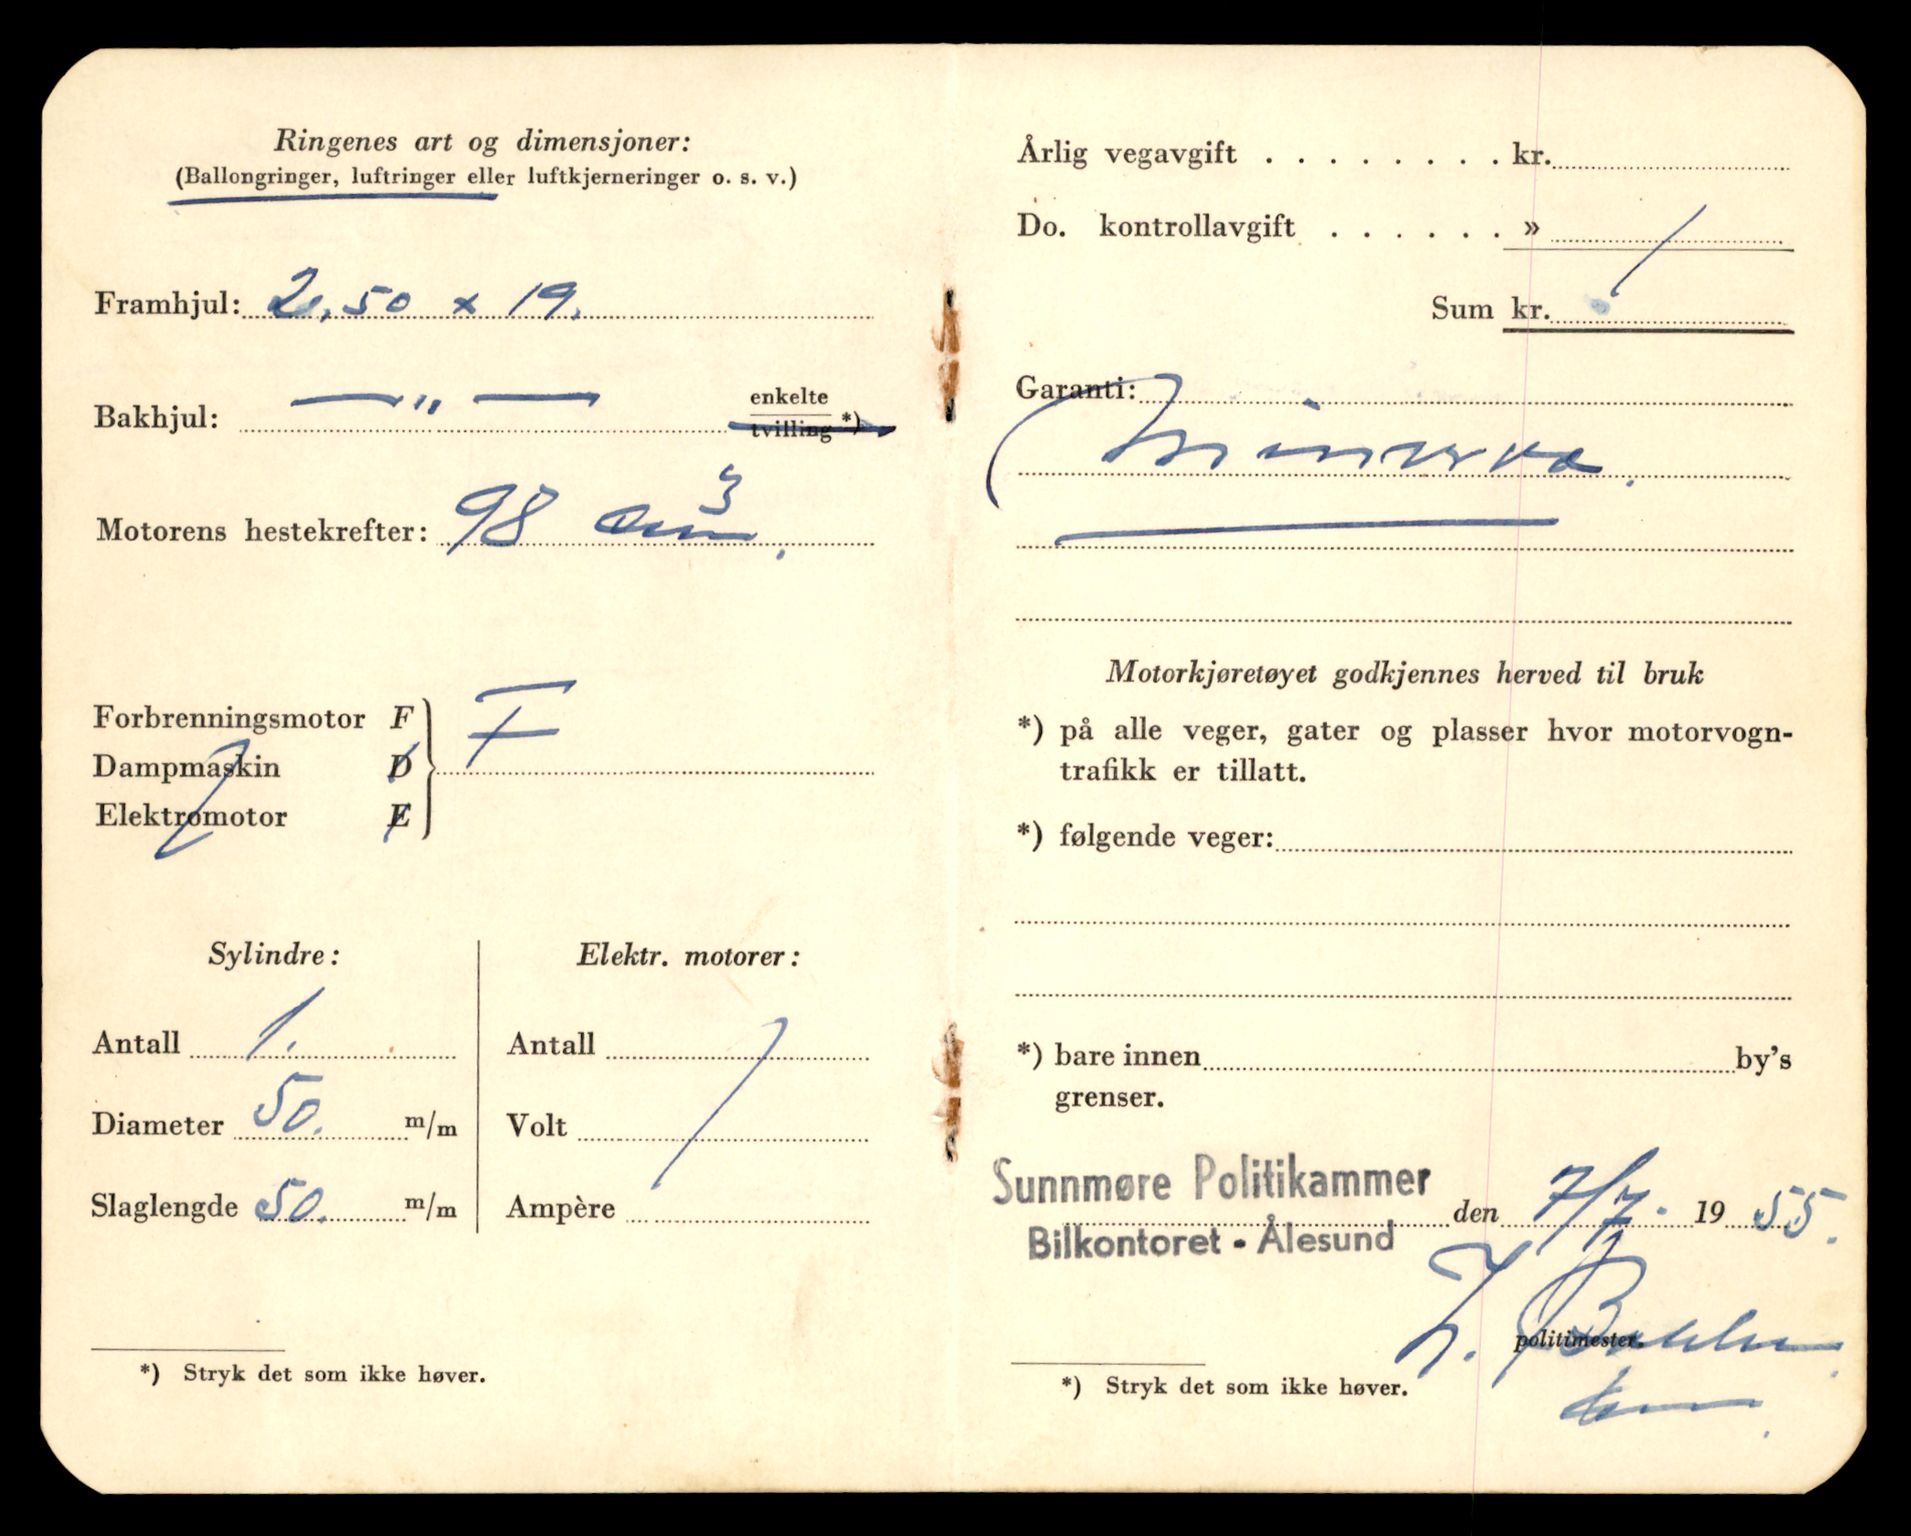 Ringenes art og dimensjoner:
(Ballongringer, luftringer eller luftkjerneringer o. s. v.)
Framhjul: 2,50 x 19.
Bakhjul: — " — enkelte
tvilling *)
Motorens hestekrefter: 98 cm³.
Forbrenningsmotor F
F
Dampmaskin D
Elektromotor E
Sylindre:
Antall 1.
Diameter 50. m/m
Slaglengde 50. m/m
Elektr. motorer:
Antall
Volt
Ampère
*) Stryk det som ikke høver.
Årlig vegavgift . . . . . . . . kr.
Do. kontrollavgift . . . . . . »
Sum kr.
Garanti:
Minerva.
Motorkjøretøyet godkjennes herved til bruk
*) på alle veger, gater og plasser hvor motorvogn-
trafikk er tillatt.
*) følgende veger:
*) bare innen by's
grenser.
Sunnmøre Politikammer
den 7/7. 19 55.
Bilkontoret - Ålesund
politimester.
*) Stryk det som ikke høver.